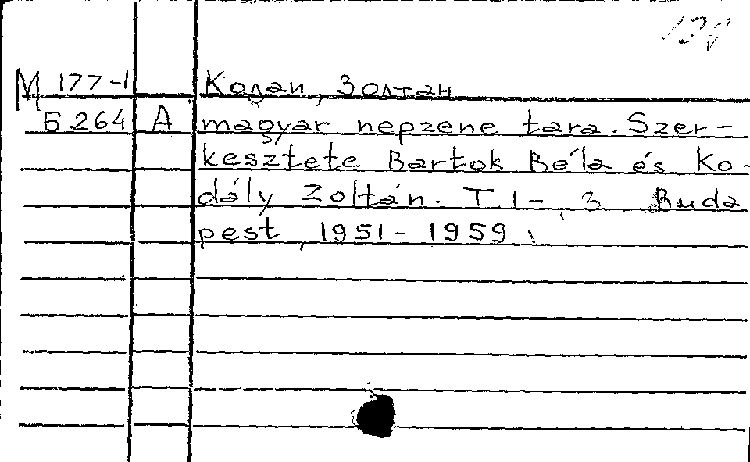 M 177-1 Кодаи, Золтан
5.264 A magyar nepzene tara. Szer-
kesztete Bartok Béla és Ko-
dály Zoltán. T.1-3 Buda
pest, 1951-1959.